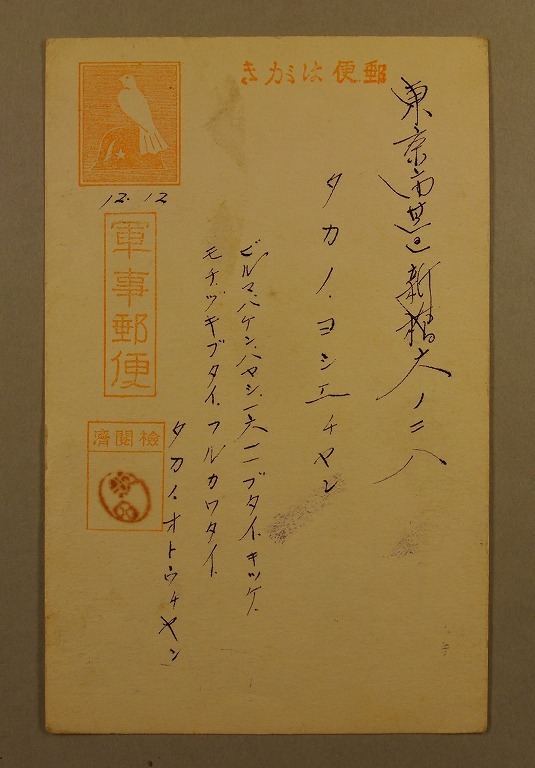 郵便はがき
東京市芝区新橋六ノ二八
タカノ.ヨシエチャン
ビルマハケン.ハヤシ.一六一一ブタイ.キツケ.
モチヅキブタイ.フルカワタイ.
タカノ.オトウチャン
12.12
軍事郵便
検閲済